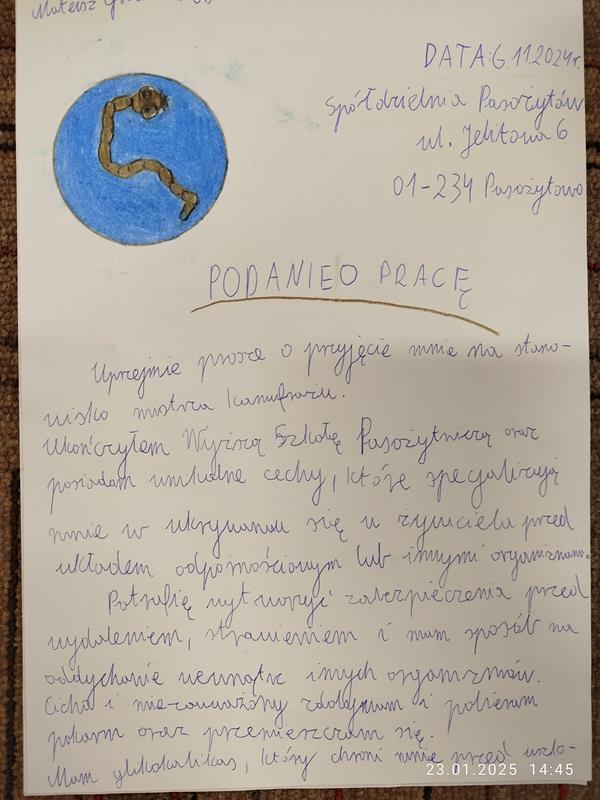 Mateusz
DATA:6.11.2024r.
Spółdzielnia Pasożytów
ul. Jelitowa 6
01-234 Pasożytowo
PODANIE O PRACĘ
Uprzejmie proszę o przyjęcie mnie na stano-
wisko mistrza kamuflażu.
Ukończyłem Wyższą Szkołę Pasożytniczą oraz
posiadam unikalne cechy, które specjalizują
mnie w ukrywaniu się u żywiciela przed
układem odpornościowym lub innymi organizmami.
Potrafię wytworzyć zabezpieczenia przed
wydaleniem, strawieniem i mam sposób na
oddychanie wewnątrz innych organizmów.
Cicho i niezauważony zdobywam i pobieram
pokarm oraz przemieszczam się.
Mam glikokaliks, który chroni mnie przed uszko-
23.01.2025 14:45